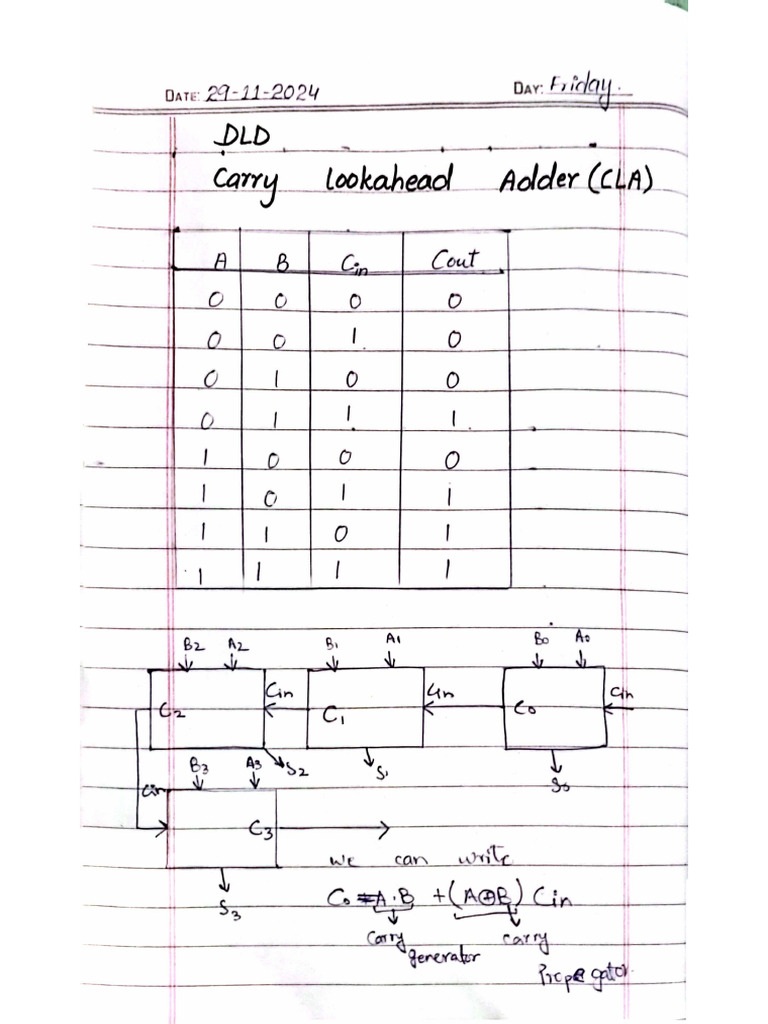 DATE: 29-11-2024 DAY: Friday.
DLD
Carry lookahead Adder (CLA)
A B Cin Cout
0 0 0 0
0 0 1 0
0 1 0 0
0 1 1 1
1 0 0 0
1 0 1 1
1 1 0 1
1 1 1 1
B2 A2 B1 A1 B0 A0
C2 Cin C1 Cin C0 Cin
S2 S1 S0
B3 A3
Cin C3
S3
we can write
C0 = A·B + (A⊕B) Cin
Carry generator
carry propagator